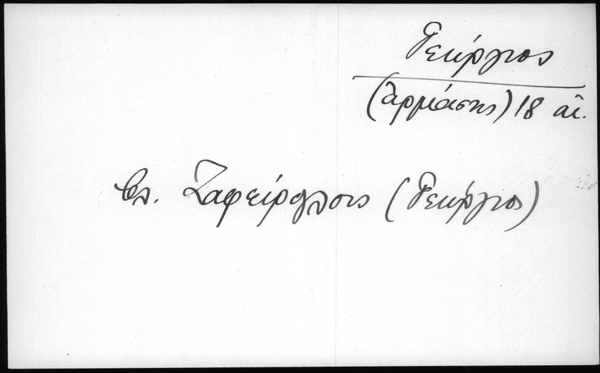 Γεώργιος
(Ἁρμάσης) 18 αἰ.
βλ. Ζαφείρογλους (Γεώργιος)